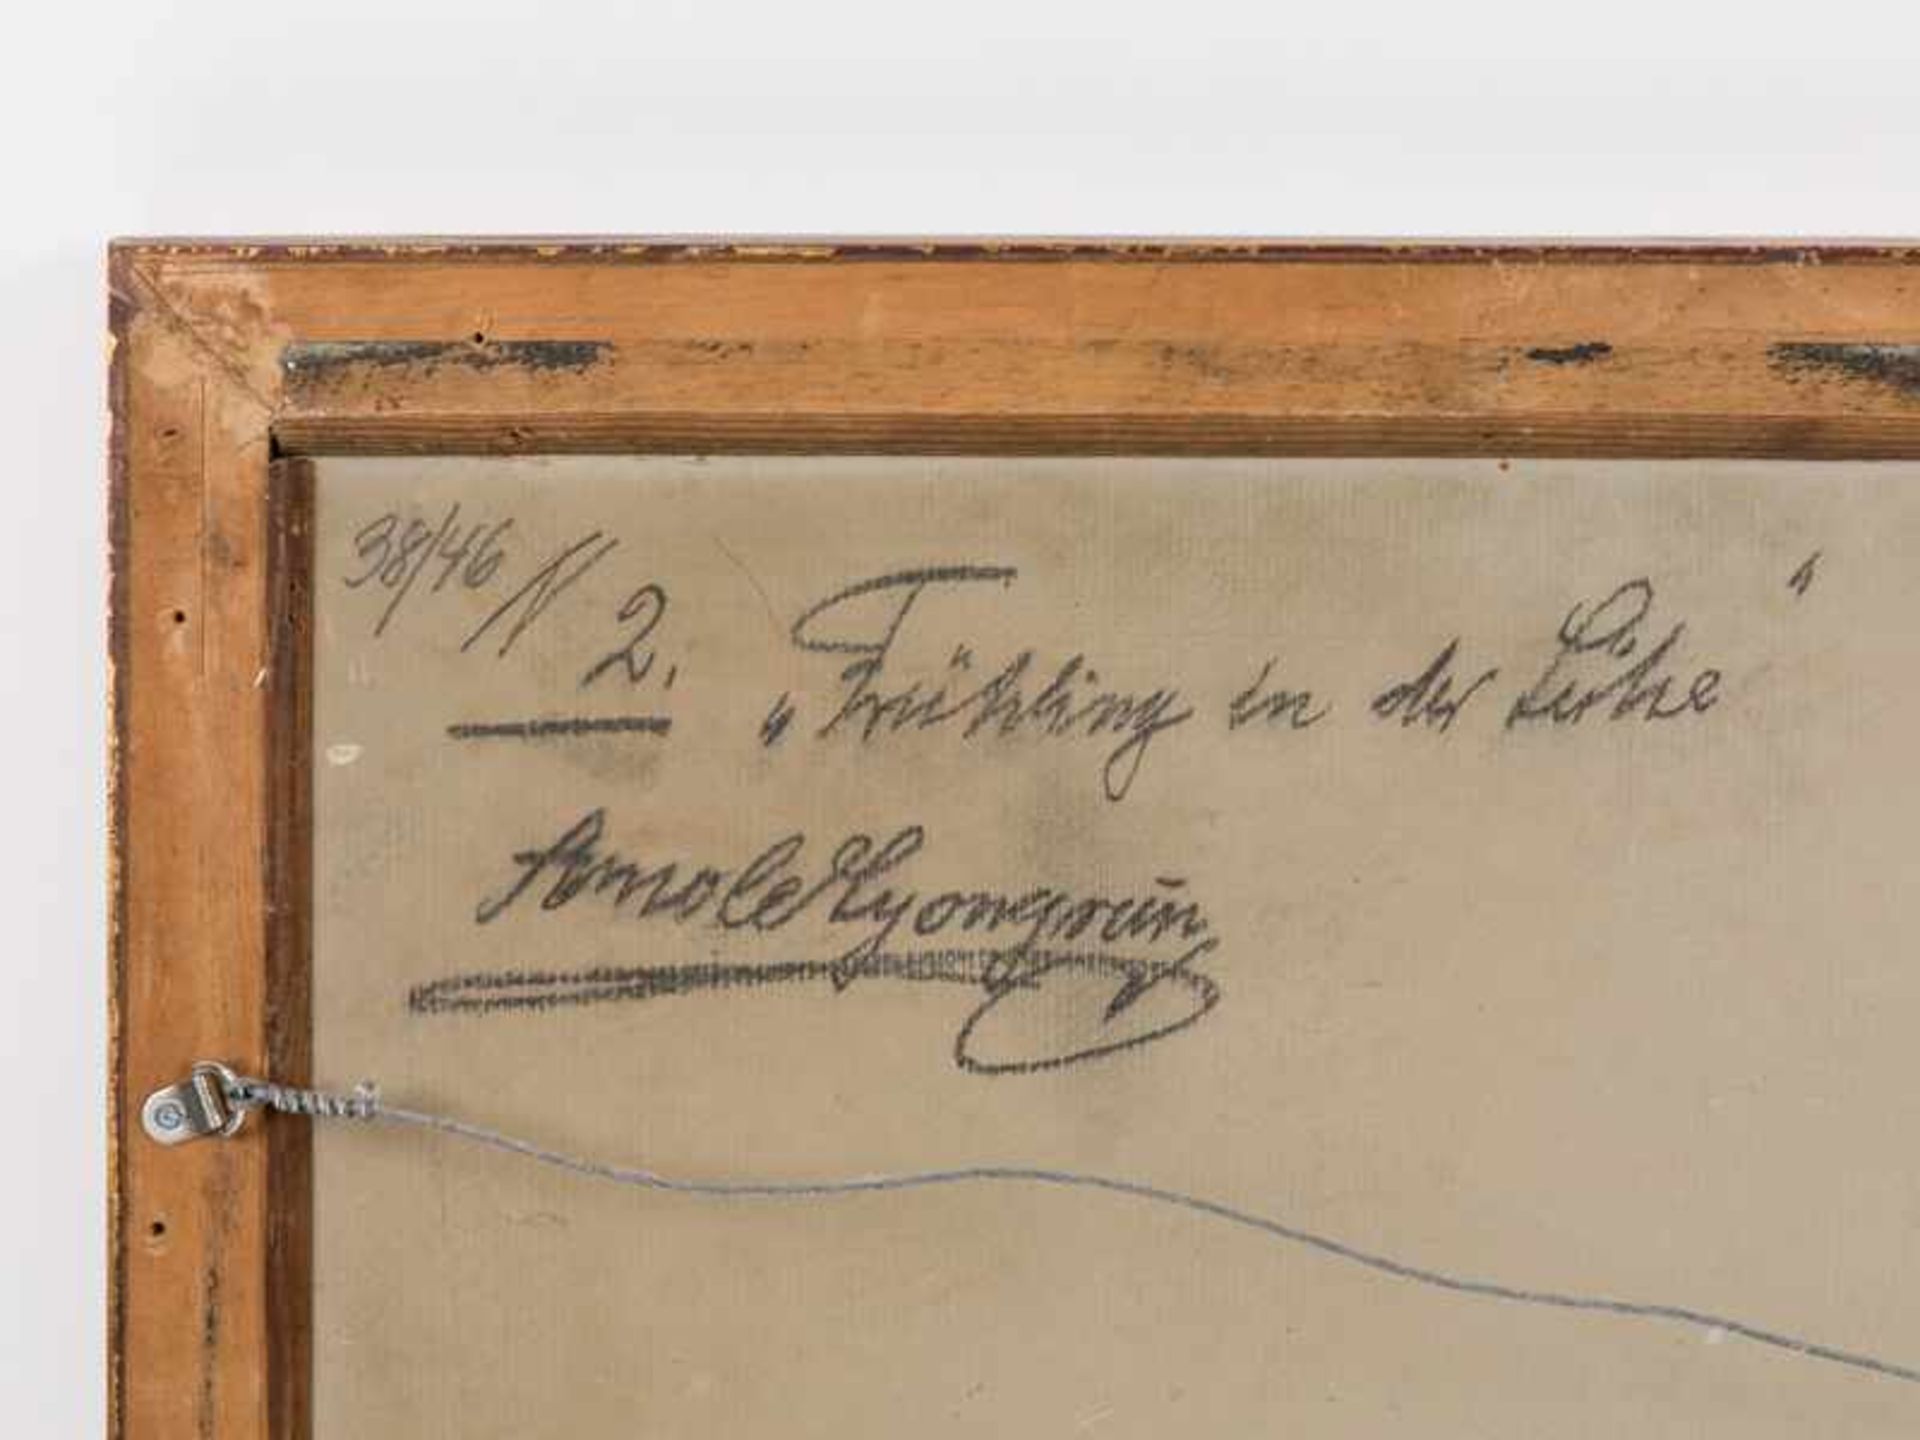 38/46 N 2. „Frühling in der Lühe“
Arnold Lyongrün